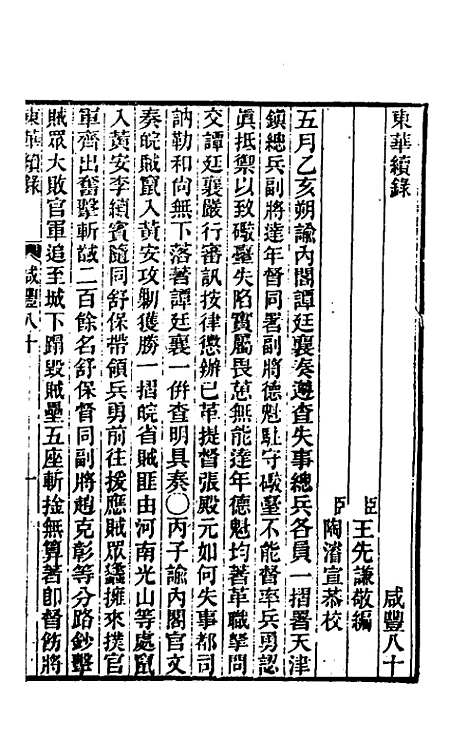 東華續錄
咸豐八十
臣王先謙敬編
臣陶濬宣恭校
五月乙亥朔諭內閣譚廷襄奏遵查失事總兵各員一摺署天津
鎮總兵副將達年督同署副將德魁駐守礮臺不能督率兵勇認
眞抵禦以致礮臺失陷實屬畏葸無能達年德魁均著革職拏問
交譚廷襄嚴行審訊按律懲辦已革提督張殿元如何失事都司
訥勒和尙無下落著譚廷襄一併查明具奏〇丙子諭內閣官文
奏皖賊竄入黃安攻勦獲勝一摺皖省賊匪由河南光山等處竄
入黃安李續賓隨同舒保帶領兵勇前往援應賊眾蠭擁來撲官
軍齊出奮擊斬馘二百餘名舒保督同副將趙克彰等分路鈔擊
賊眾大敗官軍追至城下蹋毀賊壘五座斬捡無算著卽督飭將
東華續錄 咸豐八十 一